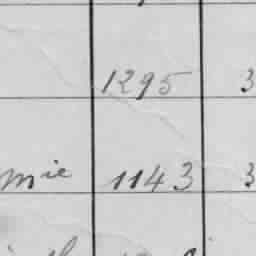 1295 3
mie 1143 3